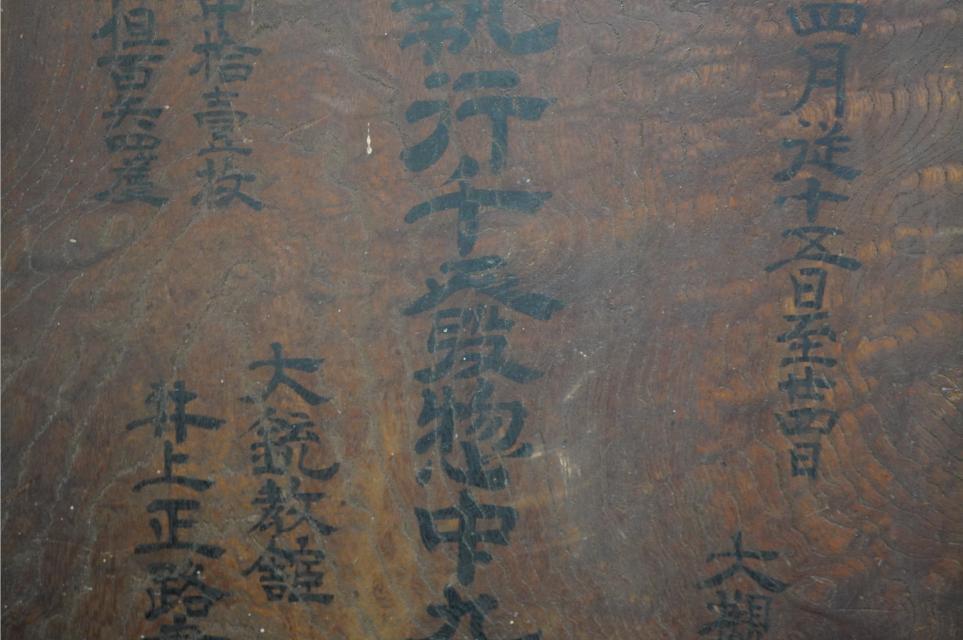 四月従十五日至廿四日
大観
執行十八段惣中九
中拾壹枚
大銃教館
但百矢四度
井上正路